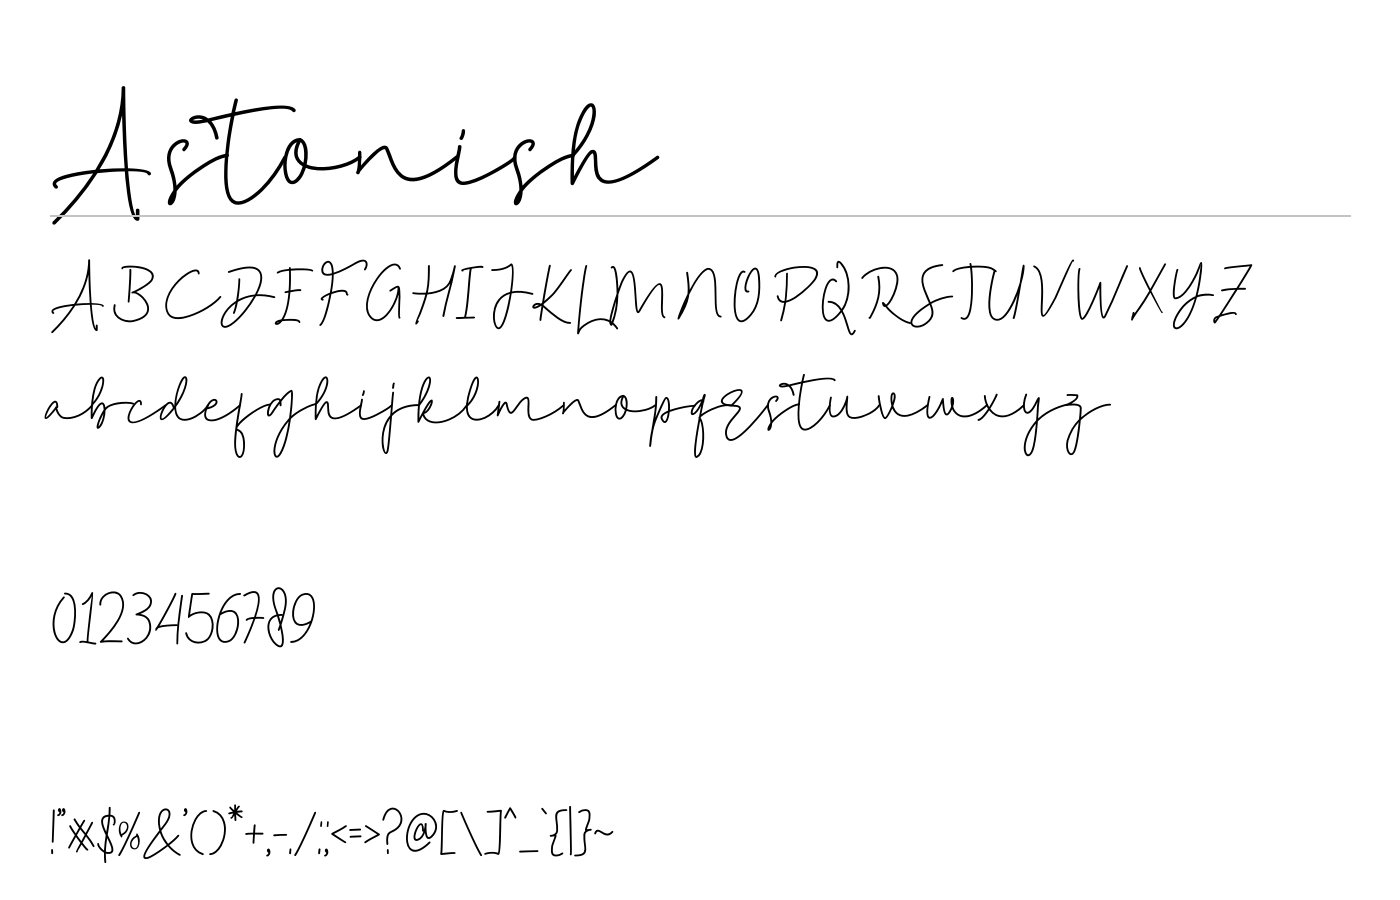 Astonish
ABCDEFGHIJKLMNOPQRSTUVWXYZ
abcdefghijklmnopqrstuvwxyz
0123456789
!"#$%&'()*+,-./:;<=>?@[\]^_`{|}~